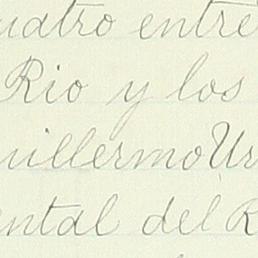 uatro entre
Rio y los
uillermo Ur
ental del R